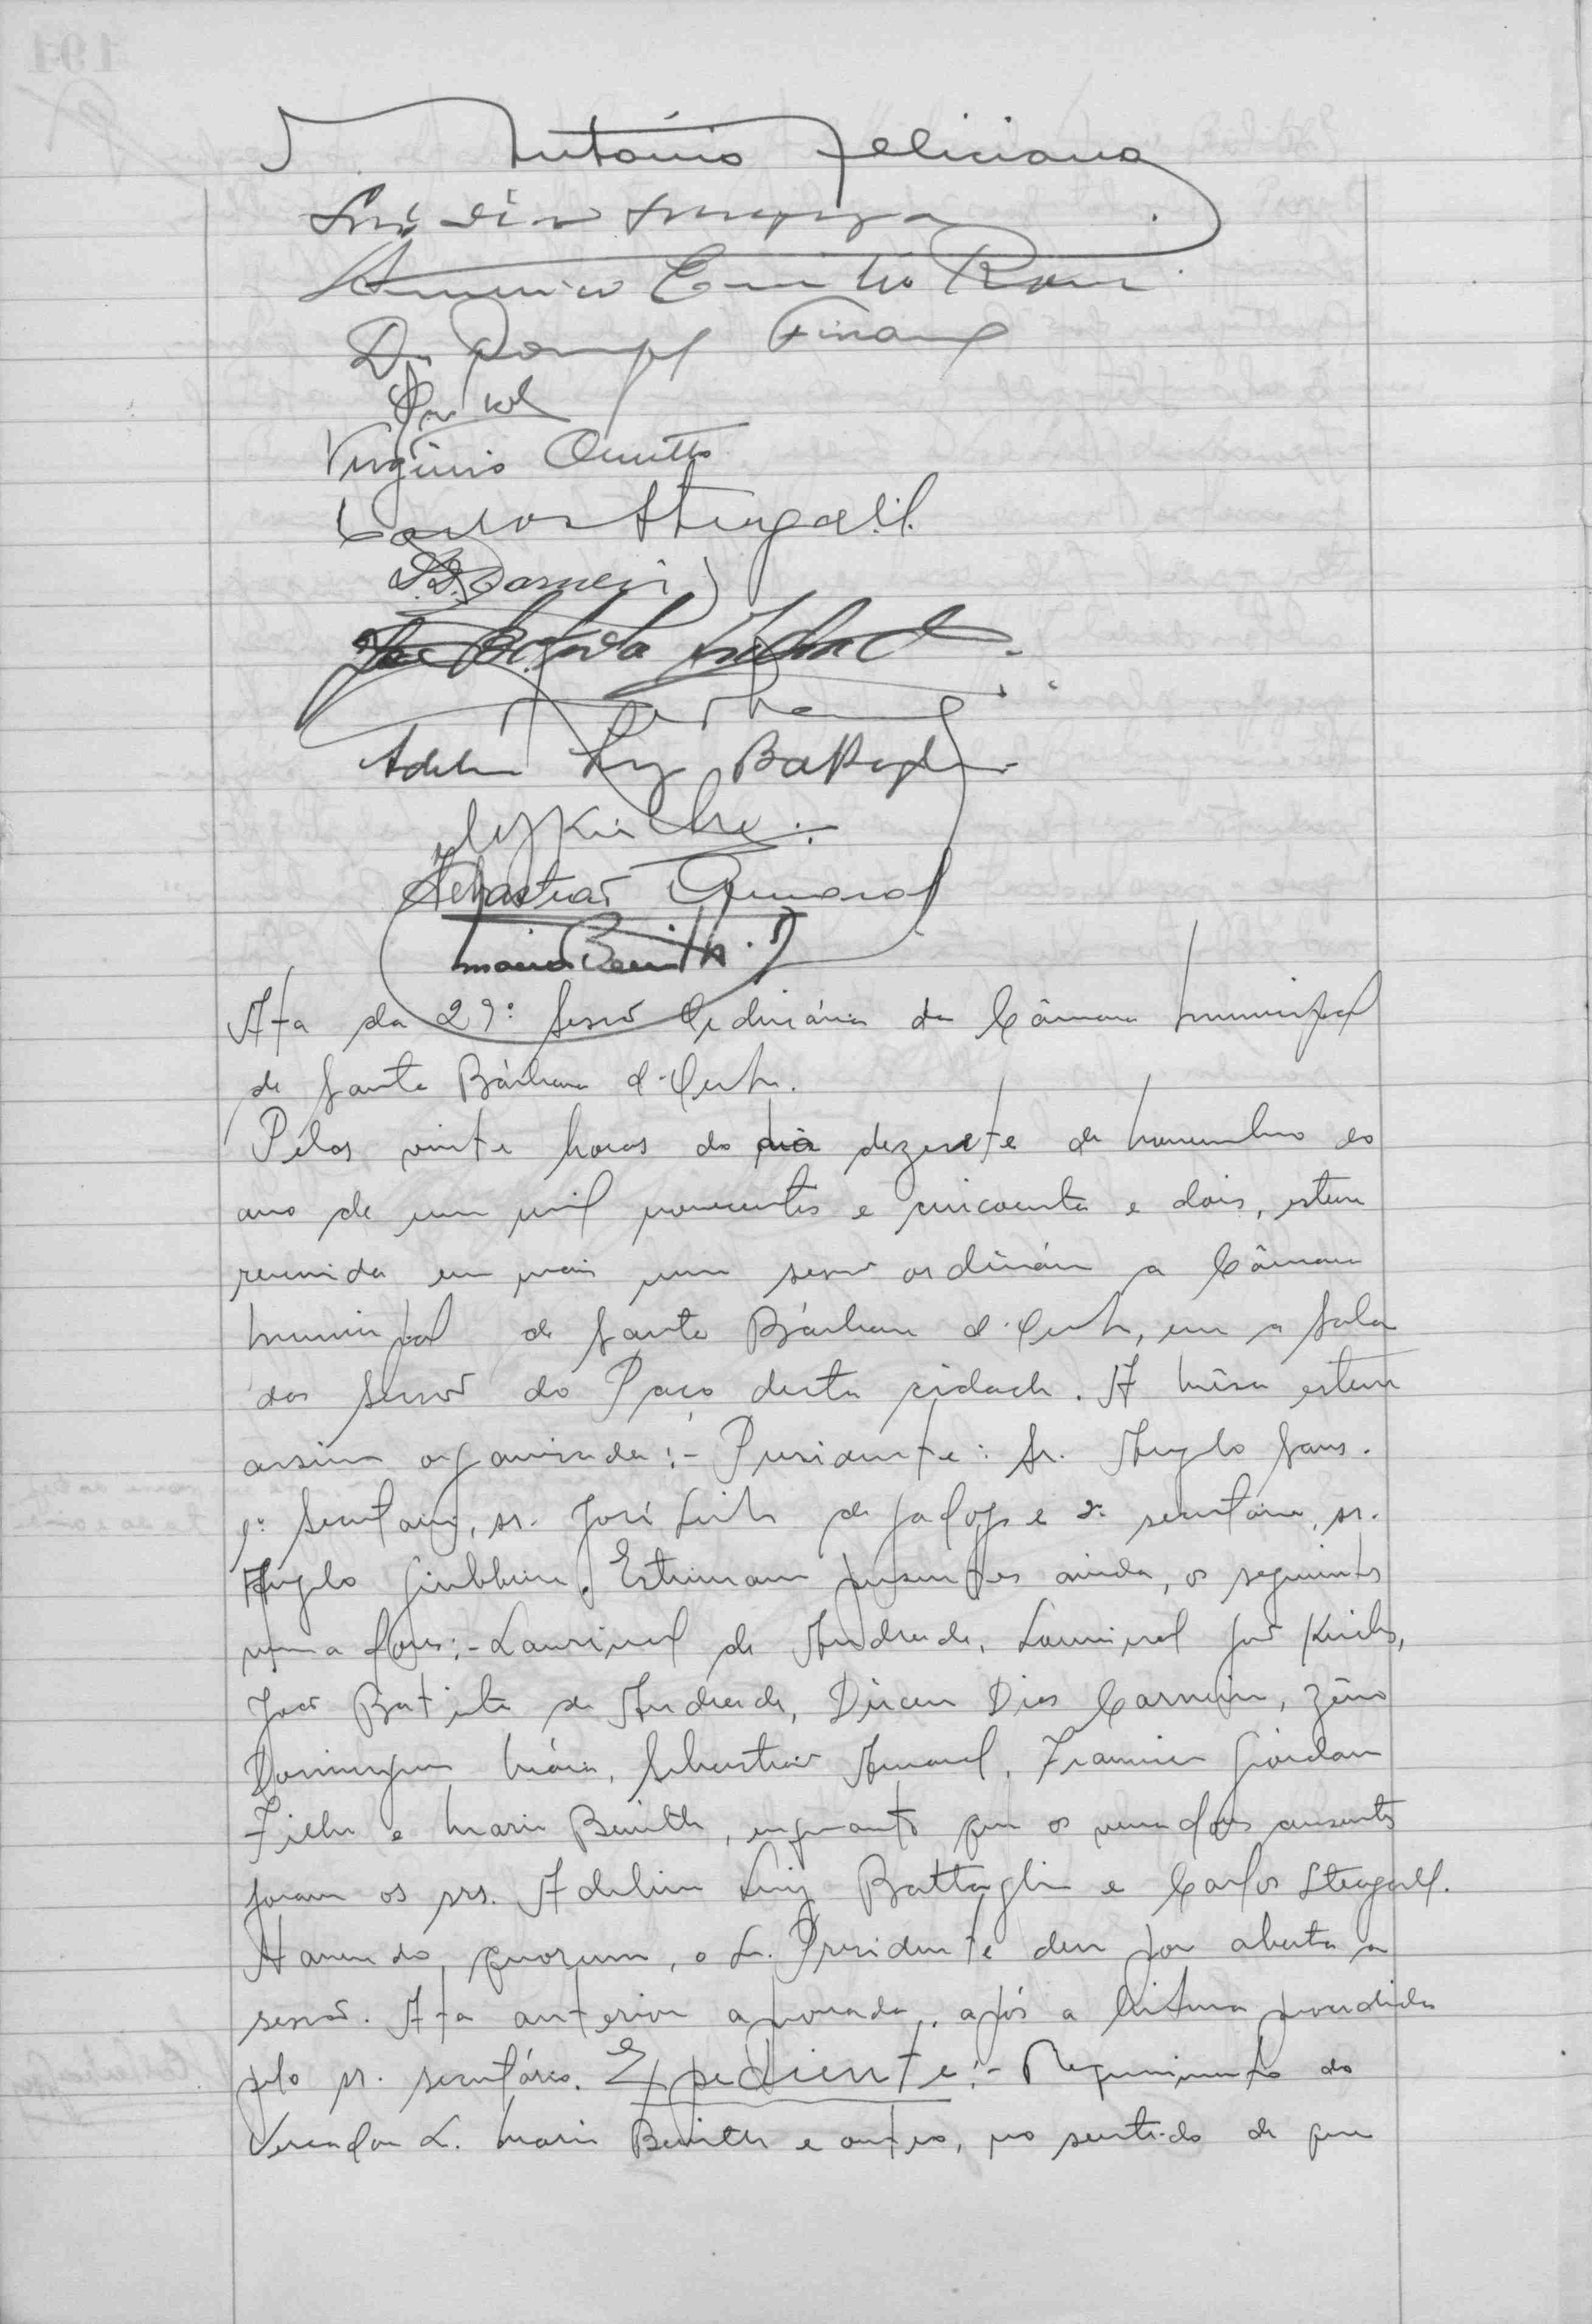 Antônio Feliciano
Américo Emilio Romi
Dr.
Virginio Ometto
Carlos Steagall
D. D. Carneiro
Adelino Luiz Battaglia
L J Kirche
Sebastião Amaral
Mario Benith
Ata da 29ª Sessão Ordinária da Câmara Municipal
de Santa Bárbara d'Oeste.
Pelas vinte horas do dia dezesete de novembro do
ano de um mil novecentos e cincoenta e dois, esteve
reunida em mais uma sessão ordinária a Câmara
Municipal de Santa Bárbara d'Oeste, em a Sala
das Sessões do Paço desta cidade. A mêsa esteve
assim organizada:- Presidente: Sr. Angelo Sans.
1º Secretario, sr. José Leite de Godoy e 2º secretário, sr.
Angelo Giubbina. Estiveram presentes ainda, os seguintes
vereadores:- Laurival de Andrade, Laurival José Kirche,
João Batista de Andrade, Dirceu Dias Carneiro, Zéno
Domingues Maia, Sebastião Amaral, Francisco Giordano
Filho e Mario Benith, enquanto que os vereadores ausentes
foram os srs. Adelino Luiz Battaglia e Carlos Steagall.
Havendo quorum, o Sr. Presidente deu por aberta a
sessão. Ata anterior aprovada, após a leitura procedida
pelo sr. secretário. Expediente:- Requerimento do
Vereador Sr. Mario Benith e outros, no sentido de que